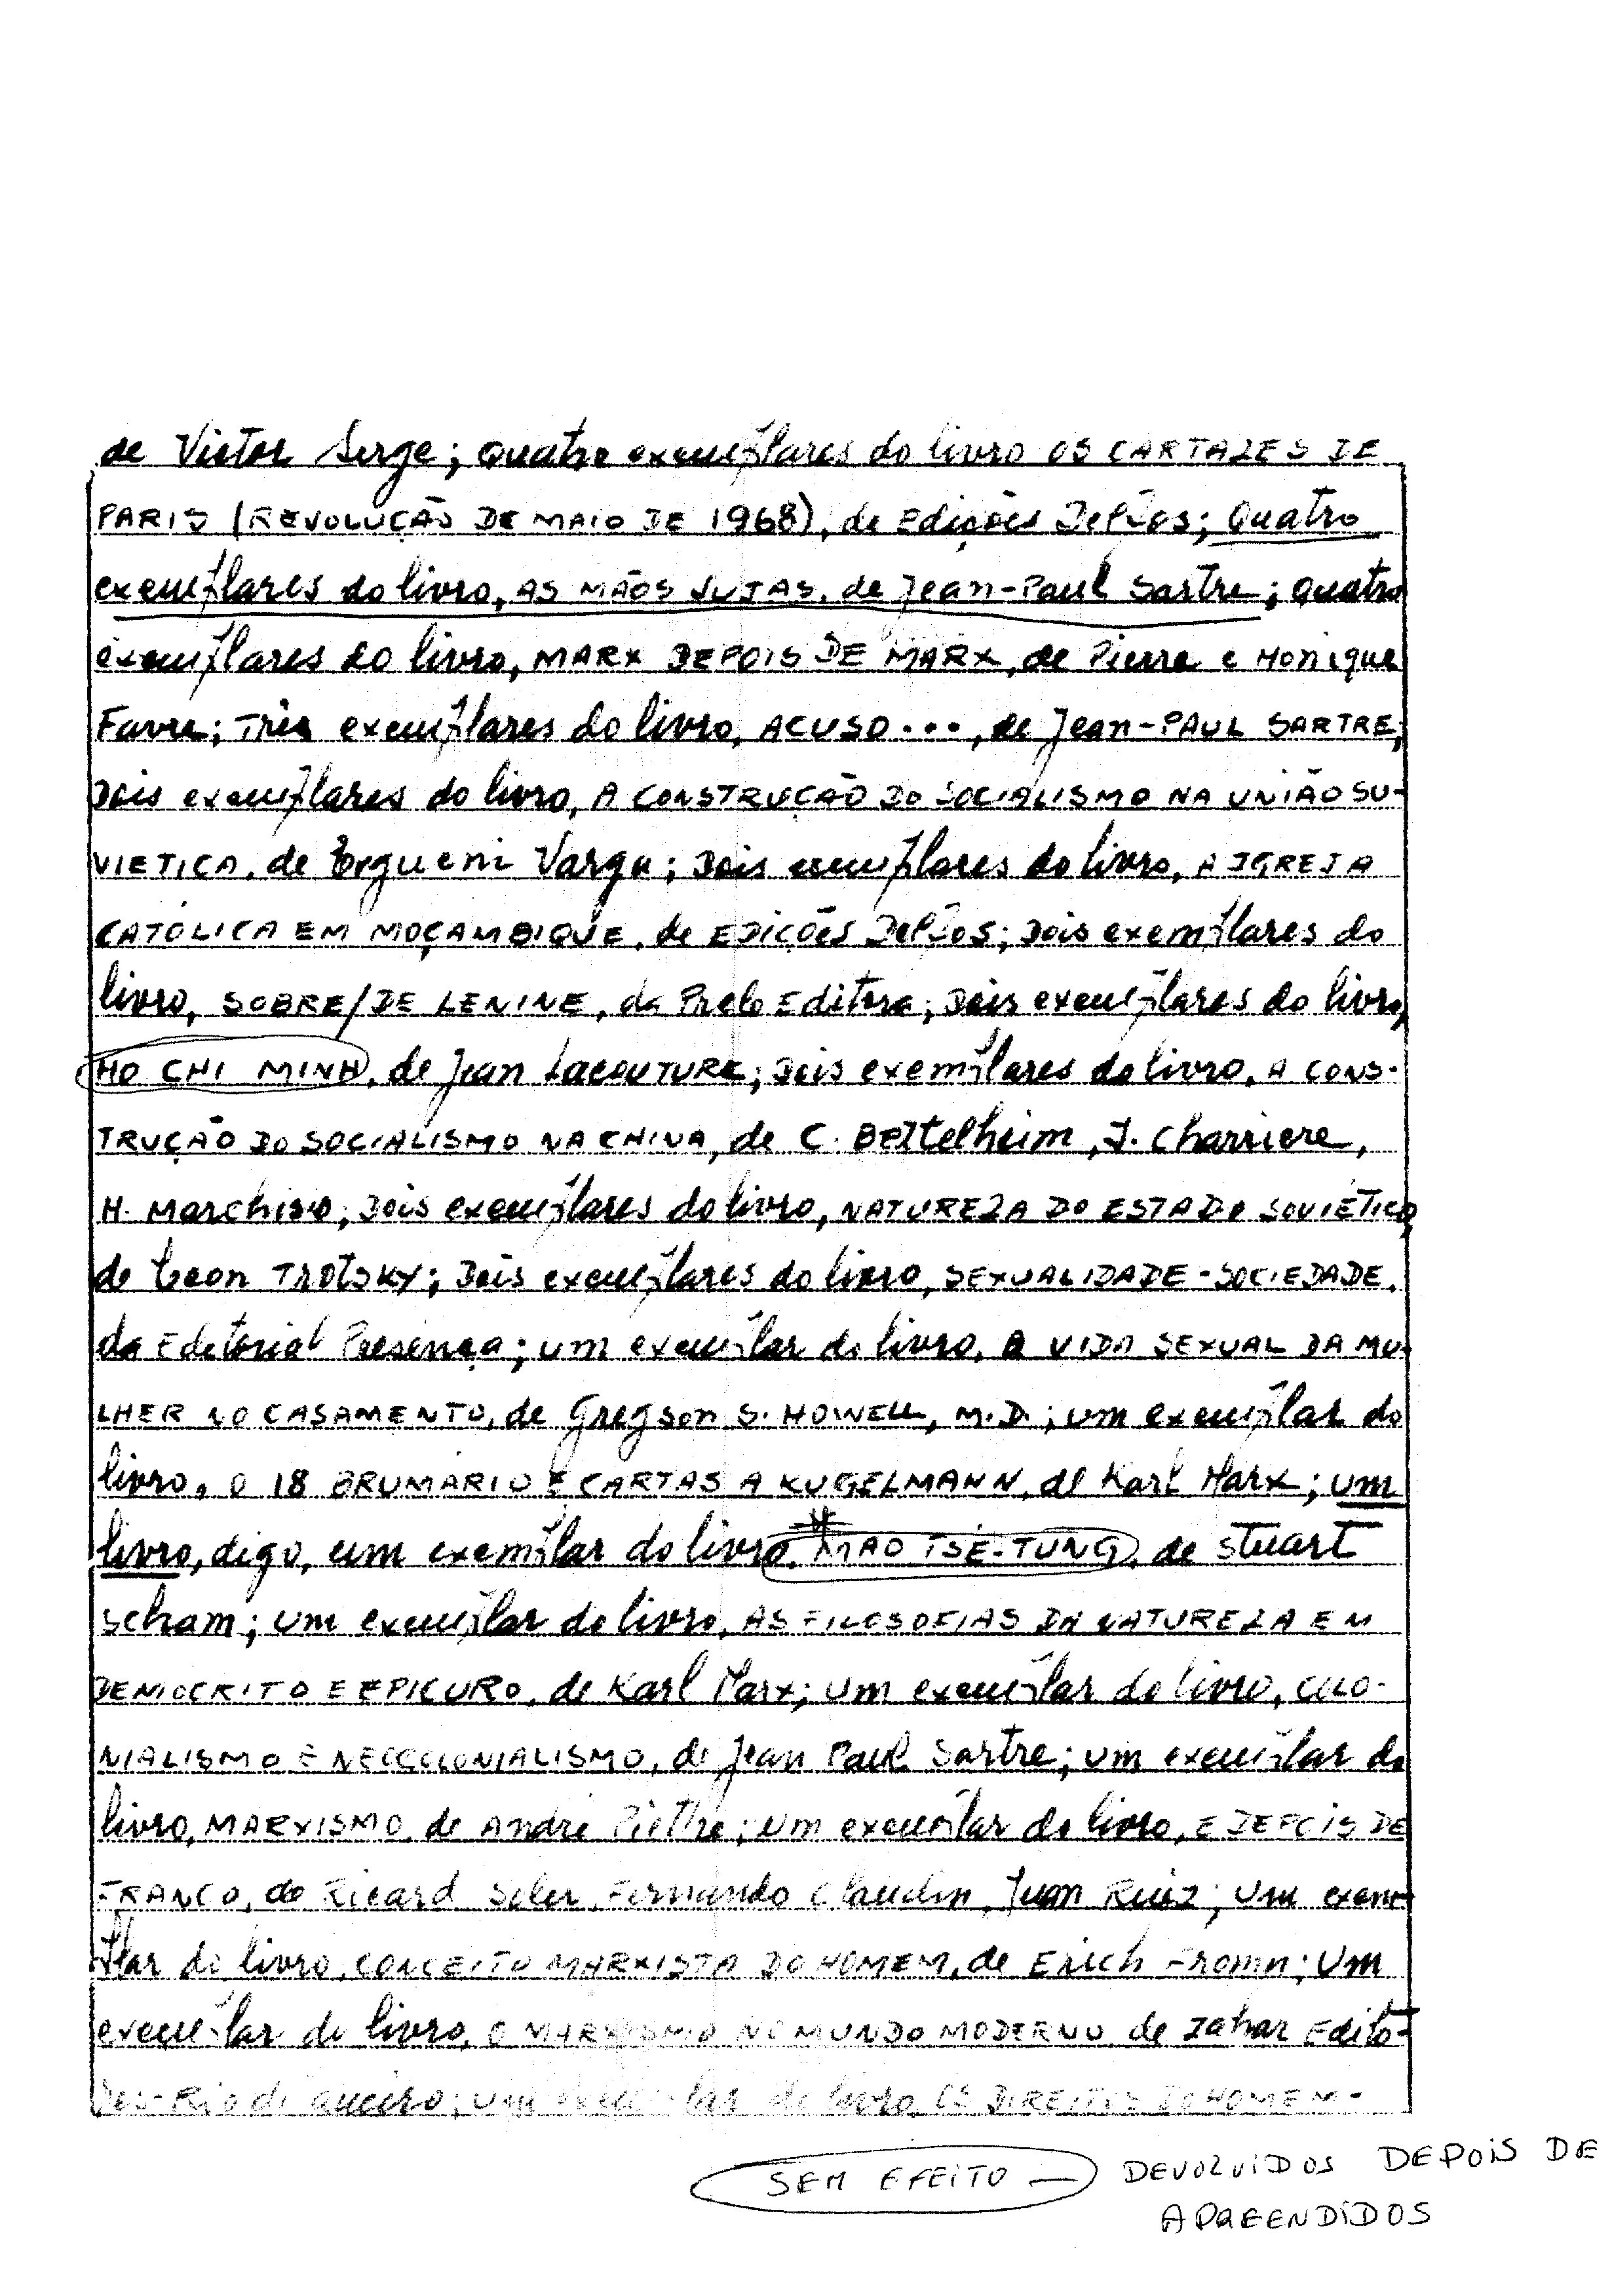 de Victor Serge; Quatro exemplares do livro OS CARTAZES DE
PARIS (REVOLUÇÃO DE MAIO DE 1968), de Edições Delfos; Quatro
exemplares do livro, AS MÃOS SUJAS, de Jean-Paul Sartre; quatro
exemplares do livro, MARX DEPOIS DE MARX, de Pierre e Monique
Favre; Três exemplares do livro, ACUSO..., de Jean-PAUL SARTRE;
Dois exemplares do livro, A CONSTRUÇÃO DO SOCIALISMO NA UNIÃO SU-
VIETICA, de Varga; Dois exemplares do livro, A IGREJA
CATÓLICA EM MOÇAMBIQUE, de EDIÇÕES Delfos; Dois exemplares do
livro, SOBRE/DE LENINE, da Prelo Editora; Dois exemplares do livro,
HO CHI MINH, de Jean LACOUTURE; Dois exemplares do livro, A CONS-
TRUÇÃO DO SOCIALISMO NA CHINA, de C. Beltelheim, J. Charriere,
H. Marchisio; Dois exemplares do livro, NATUREZA DO ESTADO SOVIÉTICO,
de Leon TROTSKY; Dois exemplares do livro, SEXUALIDADE-SOCIEDADE,
da Editorial Presença; um exemplar do livro, A VIDA SEXUAL DA MU-
LHER NO CASAMENTO, de Gregson S. HOWELL, M.D.; um exemplar do
livro, O 18 BRUMÁRIO E CARTAS A KUGELMANN, de Karl Marx; um
livro, digo, um exemplar do livro, MAO TSÉ-TUNG, de Stuart
Scham; um exemplar do livro, AS FILOSOFIAS DA NATUREZA EM
DEMOCRITO E EPICURO, de Karl Marx; um exemplar do livro, COLO-
NIALISMO E NEOCOLONIALISMO, de Jean Paul Sartre; um exemplar do
livro, MARXISMO, de André Piettre; um exemplar do livro, E DEPOIS DE
FRANCO, de Ricard Soler, Fernando Claudin, Juan Ruiz; um exem-
plar do livro, CONCEITO MARXISTA DO HOMEM, de Erich Fromn; um
exemplar do livro, O MARXISMO NO MUNDO MODERNO, de Zahar Edito-
res-Rio de aneiro; um exemplar do livro, OS DIREITOS DO HOMEM-
SEM EFEITO — DEVOLVIDOS DEPOIS DE
APREENDIDOS